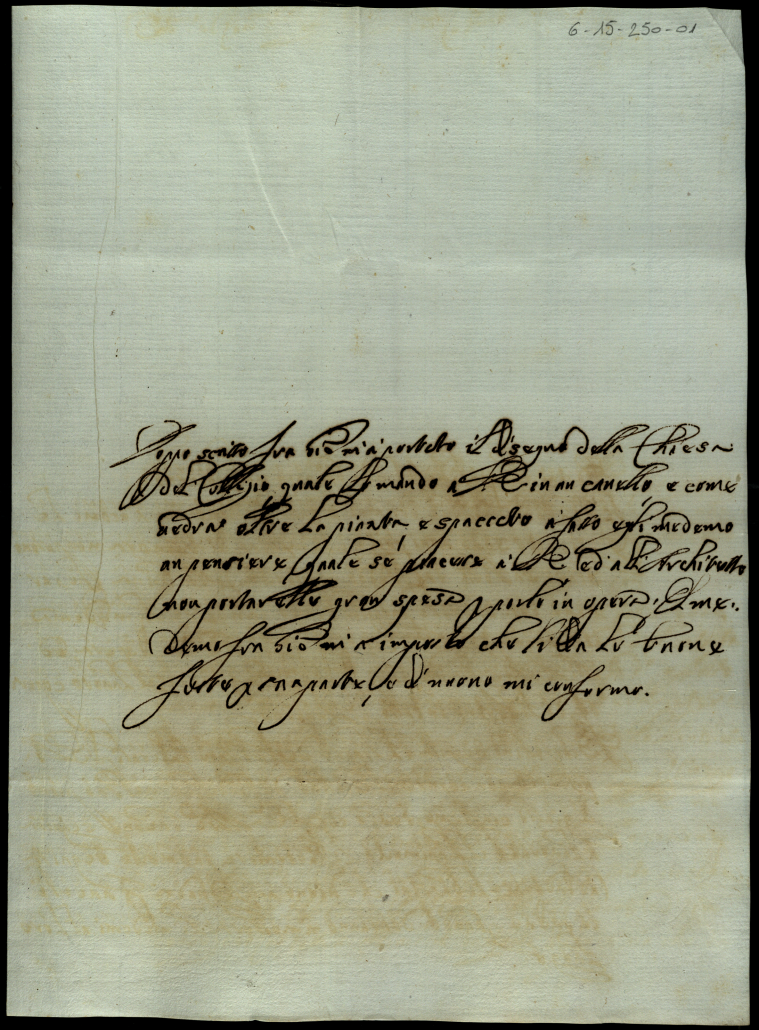 6-15-250-01
Doppo scritto fra Gio: mi à portato il disegno della Chiesa
del Collegio quale li mando a in un canello, e come
vedrà oltre la pianta, e spaccato à fatto egli medemo
un pensiere quale se piacerà à ed all'Architetto
non portarebbe gran spesa p porlo in opera. Il me:
demo fra Gio: mi à imposto che li dia le buone
feste p sua parte, e di nuovo mi confermo.